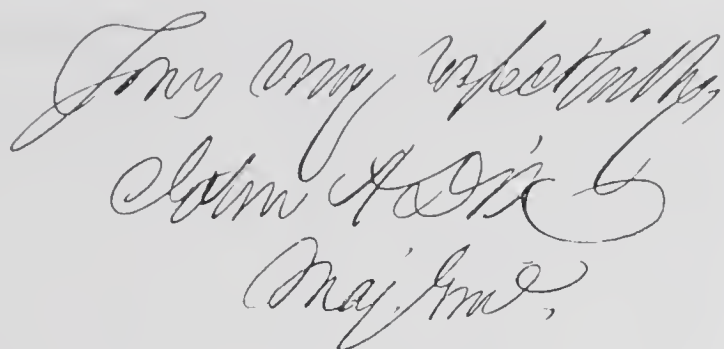 Yours very respectfully,
John A Dix
Maj. Genl.